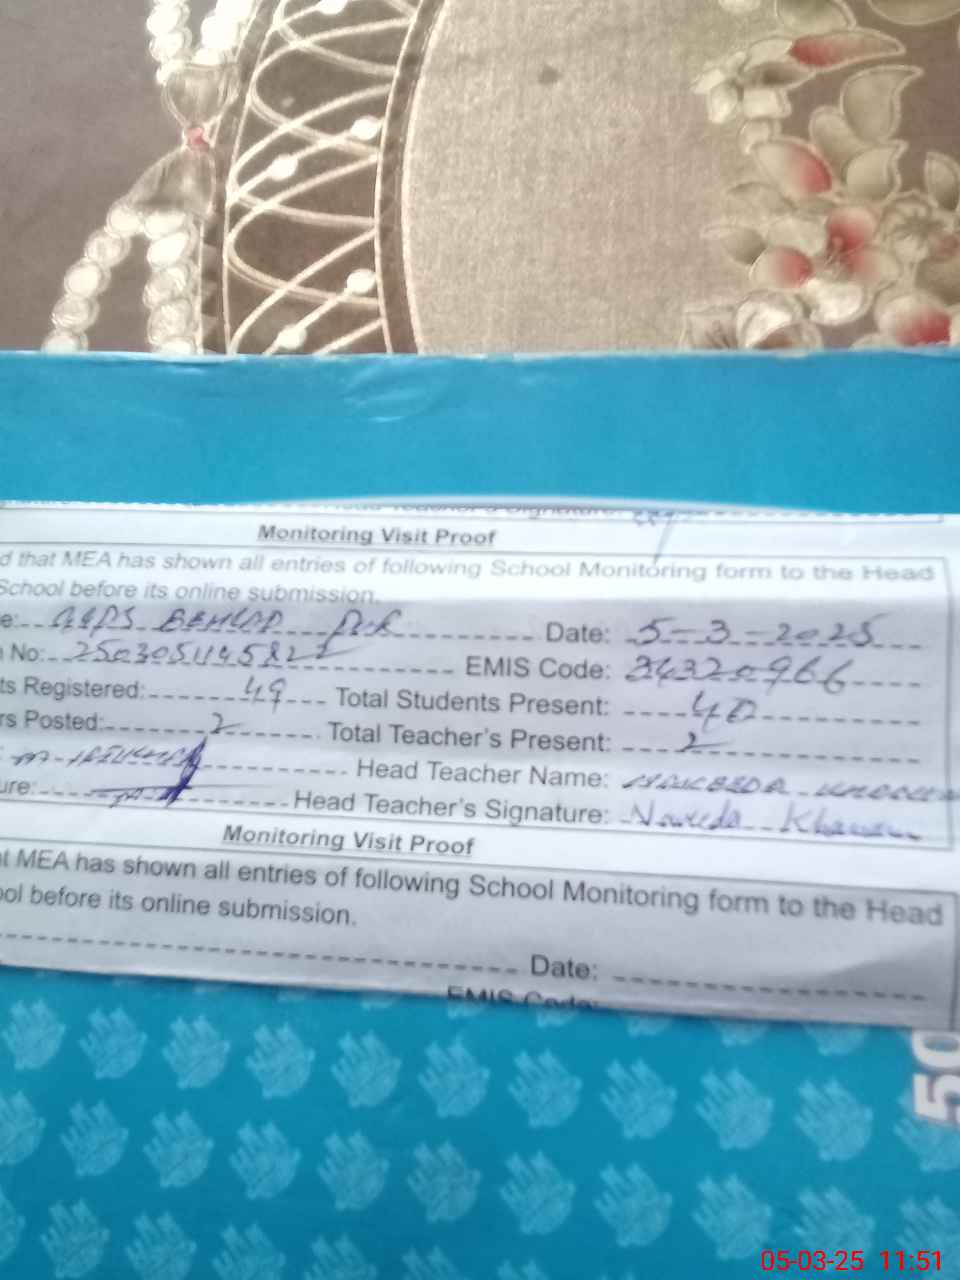 Monitoring Visit Proof
d that MEA has shown all entries of following School Monitoring form to the Head
School before its online submission.
e: GGPS BEHLAP PUR Date: 5-3-2025
No: EMIS Code: 34320966
ts Registered: 49 Total Students Present: 40
rs Posted: 2 Total Teacher's Present: 2
Head Teacher Name:
ure: Head Teacher's Signature: Naveeda Khanum
Monitoring Visit Proof
at MEA has shown all entries of following School Monitoring form to the Head
ool before its online submission.
Date:
EMIS Code:
50
05-03-25 11:51